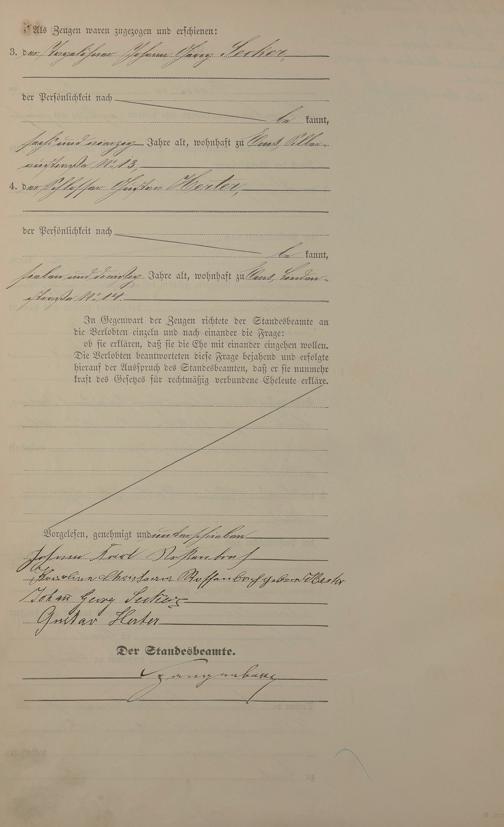 Als Zeugen waren zugezogen und erschienen:
3. der Johann Georg
der Persönlichkeit nach
be kannt,
sechs und zwanzig Jahre alt, wohnhaft zu
No 13,
4. der Schlosser Gustav Herter,
der Persönlichkeit nach
be kannt,
sieben und dreißig Jahre alt, wohnhaft zu
No 14
In Gegenwart der Zeugen richtete der Standesbeamte an
die Verlobten einzeln und nach einander die Frage:
ob sie erklären, daß sie die Ehe mit einander eingehen wollen.
Die Verlobten beantworteten diese Frage bejahend und erfolgte
hierauf der Ausspruch des Standesbeamten, daß er sie nunmehr
kraft des Gesetzes für rechtmäßig verbundene Eheleute erkläre.
Vorgelesen, genehmigt und unterschrieben
Johann Karl
geborene
Johann Georg
Gustav Herter
Der Standesbeamte.